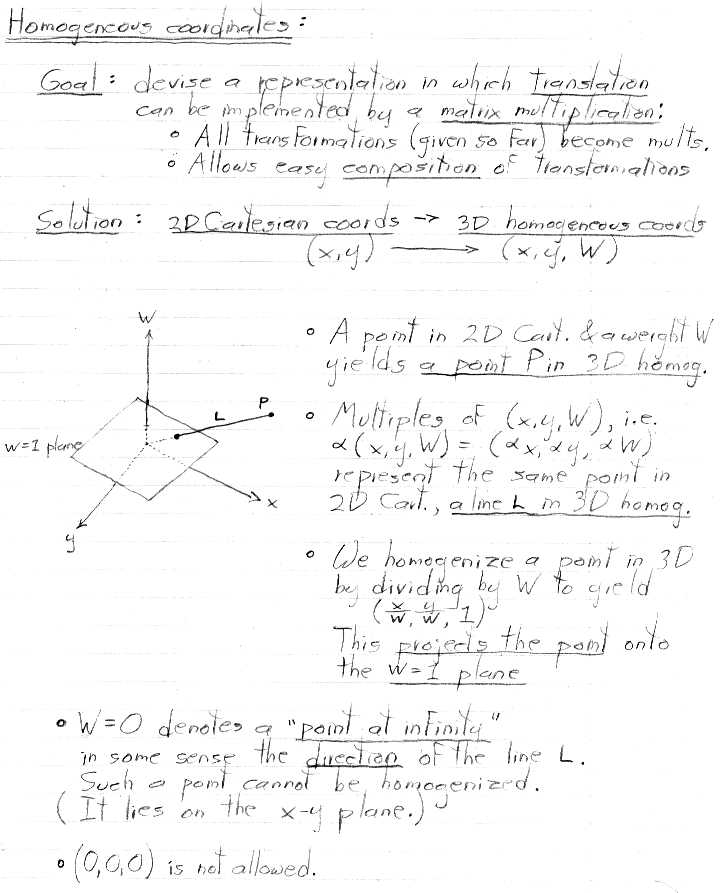 Homogeneous coordinates:
Goal: devise a representation in which translation
can be implemented by a matrix multiplication:
• All transformations (given so far) become mults.
• Allows easy composition of transformations
Solution: 2D Cartesian coords → 3D homogeneous coords
(x,y) → (x,y,W)
W
P
L
w=1 plane
x
y
• A point in 2D Cart. & a weight W
yields a point P in 3D homog.
• Multiples of (x,y,W), i.e.
α(x,y,W) = (αx,αy,αW)
represent the same point in
2D Cart., a line L in 3D homog.
• We homogenize a point in 3D
by dividing by W to yield
(x/W, y/W, 1)
This projects the point onto
the W=1 plane
• W=0 denotes a "point at infinity"
in some sense the direction of the line L.
Such a point cannot be homogenized.
(It lies on the x-y plane.)
• (0,0,0) is not allowed.